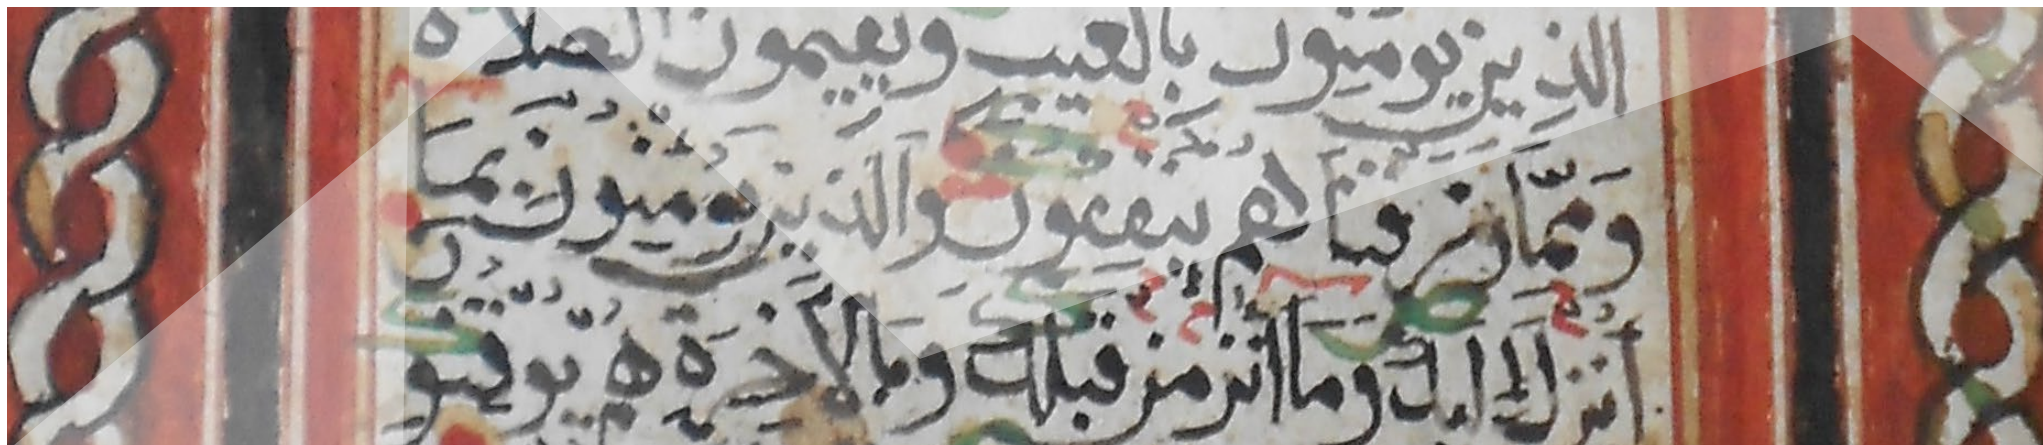 الذين يومنون بالغيب ويقيمون الصلاة
ومما رزقناهم ينفقون والذين يومنون بما
أنزل إليك وما أنزل من قبلك وبالآخرة هم يوقنو